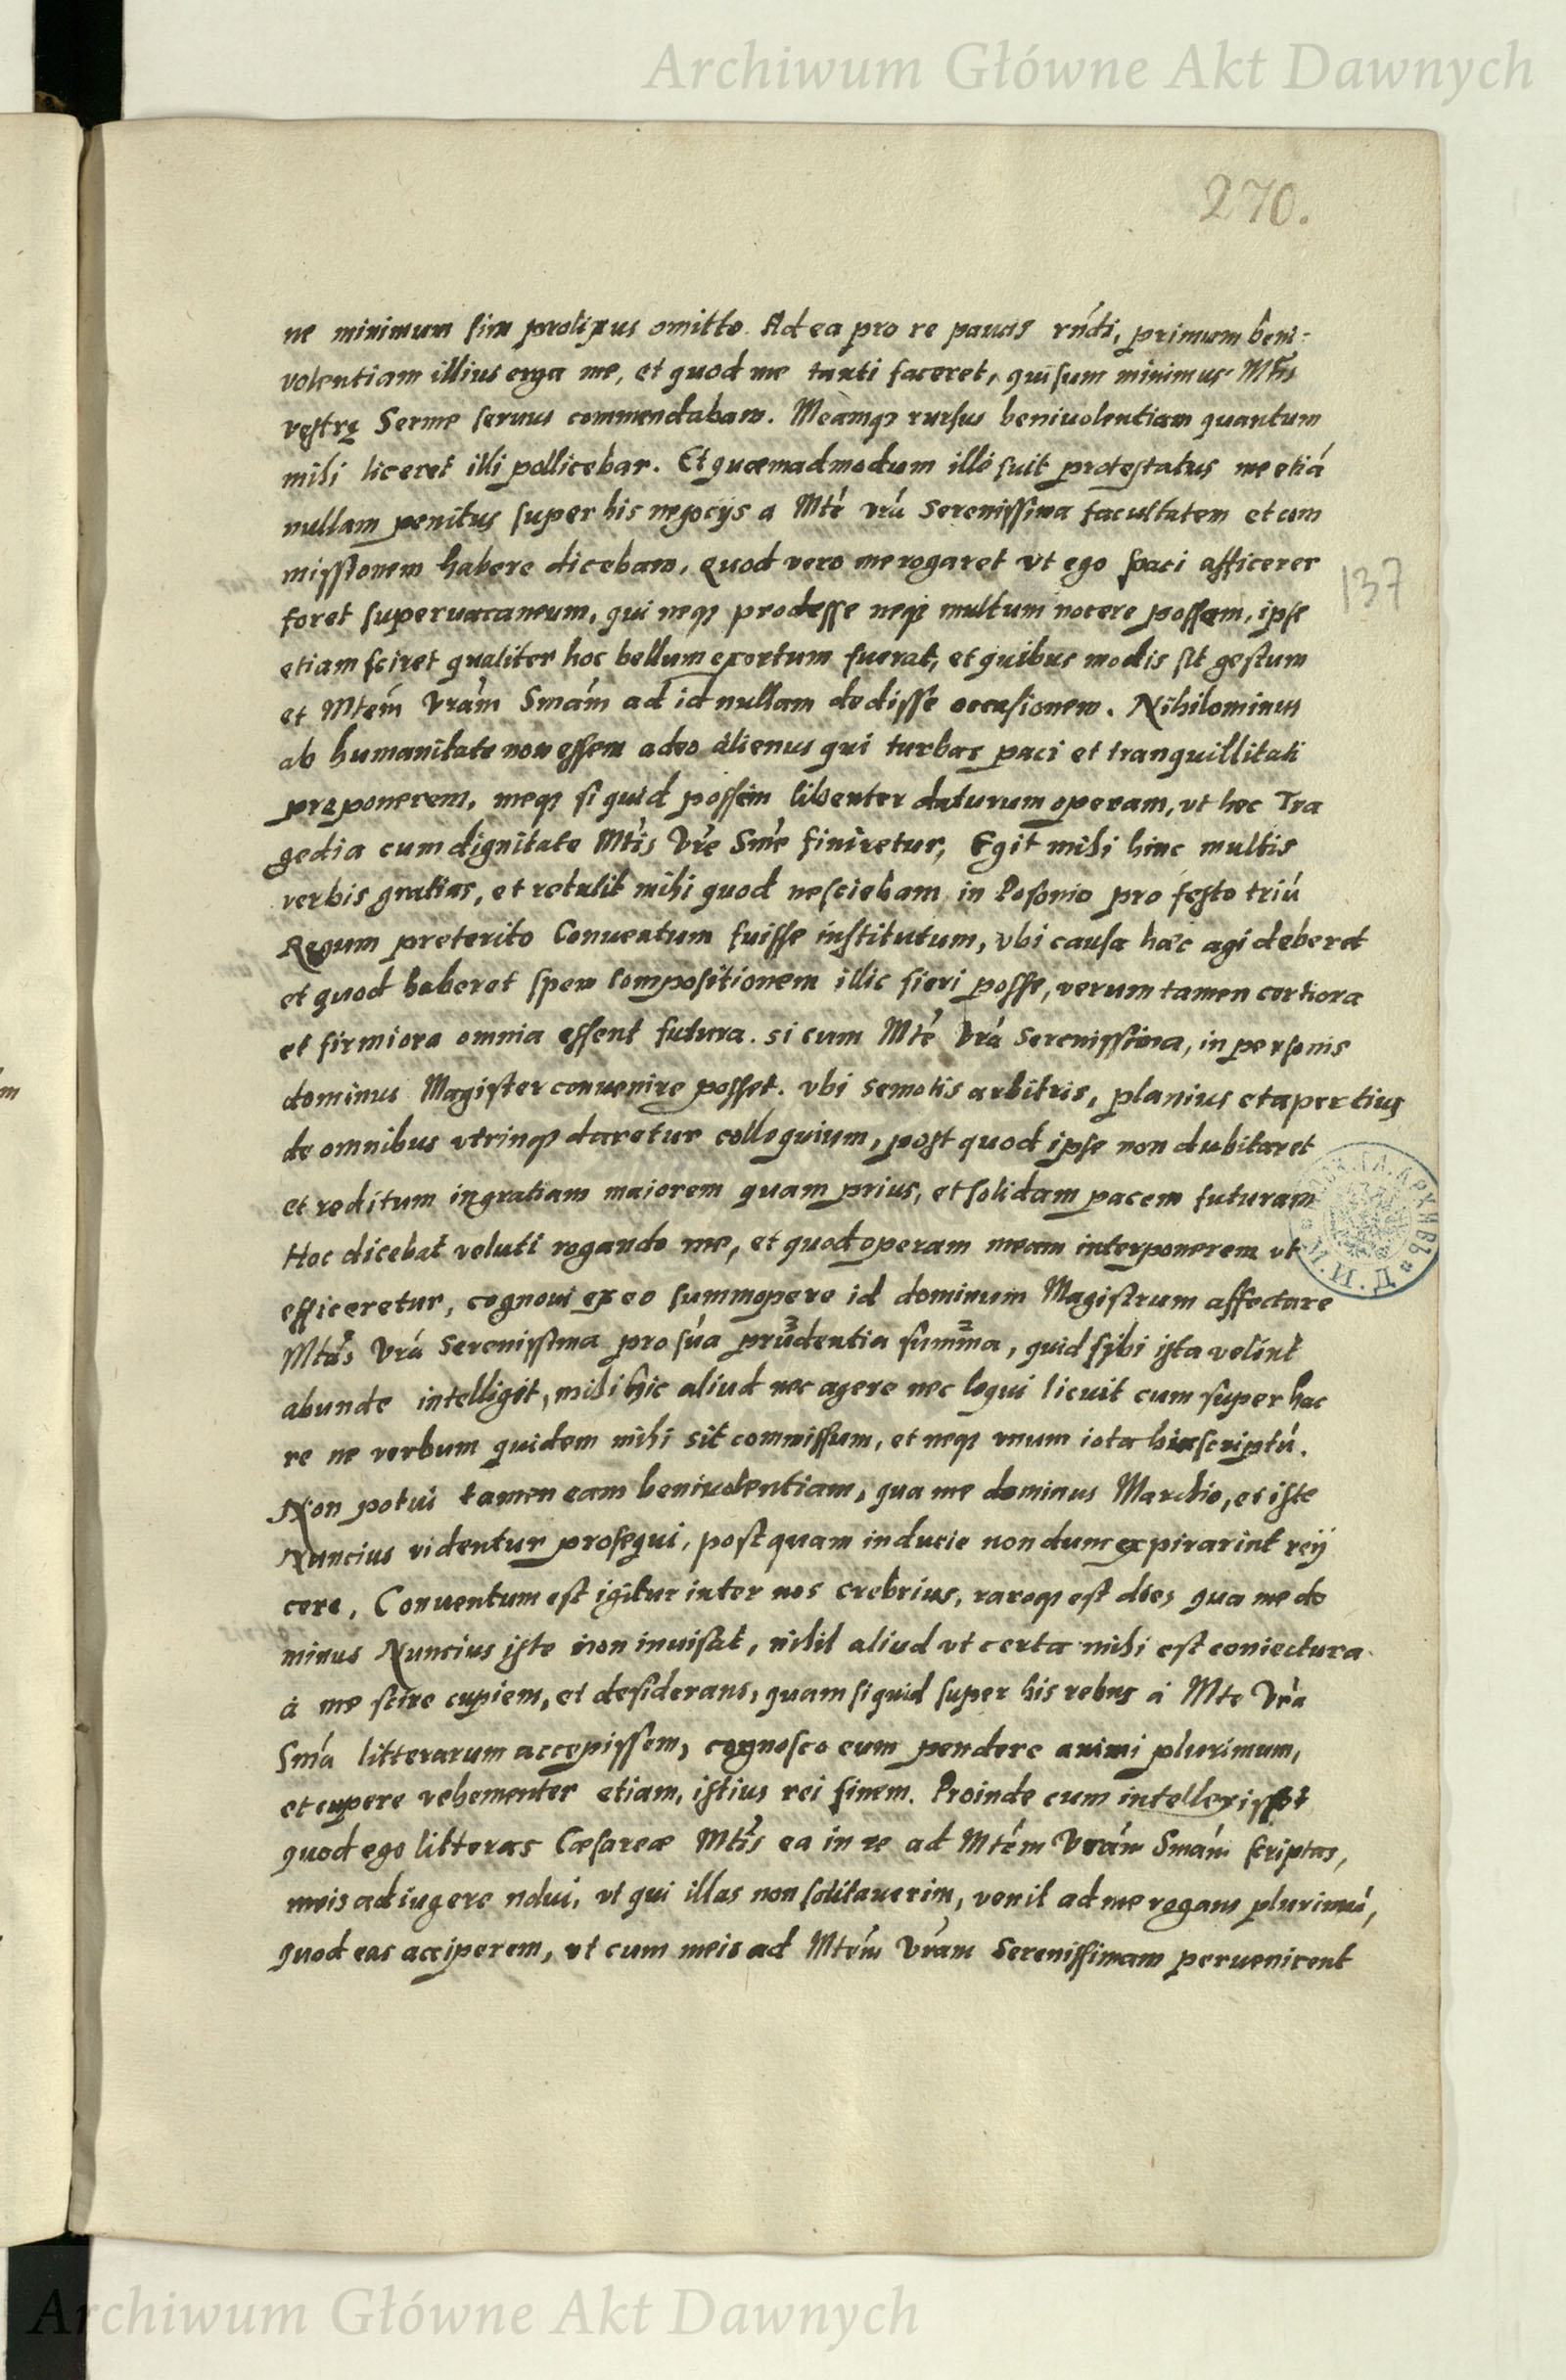 Archiwum Główne Akt Dawnych
270.
ne minimum sim prolixus omitto. Ad ea pro re paucis rńdi, primum beni-
volentiam illius erga me, et quod me tanti faceret, qui sum minimus Mtis
vestrę Serme servus commendabam. Meamq; rursus benivolentiam quantum
mihi liceret illi pollicebar. Et quemadmodum ille fuit protestatus me etiá
nullam penitus super his negocijs a Mté vrá Serenissima facultatem et com
missionem habere dicebam, quod vero me rogaret vt ego paci afficerer
137
foret supervacaneum, qui neq; prodesse neq; multum nocere possem, ipse
etiam sciret qualiter hoc bellum exortum fuerat, et quibus modis sit gestum
et Mtém Vrám Smám ad id nullam dedisse occasionem. Nihilominus
ab humanitate non essem adeo alienus qui turbas paci et tranquillitati
pręponerem, meq; si quid possem libenter daturum operam, vt hec Tra
gedia cum dignitate Mtis Vre Smé finiretur, Egit mihi hinc multis
verbis gratias, et retulit mihi quod nesciebam in Posonio pro festo triú
Regum preterito Conventum fuisse institutum, vbi causa hæc agi deberet
et quod haberet spem compositionem illic fieri posse, verum tamen certiora
et firmiora omnia essent futura. si cum Mté Vrá Serenissima, in personis
dominus Magister convenire posset. vbi semotis arbitris, planius et apertius
de omnibus vtrinq; daretur colloquium, post quod ipse non dubitaret
et reditum in gratiam maiorem quam prius, et solidam pacem futuram
Hoc dicebat veluti rogando me, et quod operam meam interponerem vt
efficeretur, cognovi ex eo summopere id dominum Magistrum affectare
Mtás Vrá Serenissima pro súa prudentia summa, quid sibi ista velint
abunde intelligit, mihi hic aliud nec agere nec loqui licuit cum super hac
re ne verbum quidem mihi sit commissum, et neq; vnum iota huc scriptú.
Non potui tamen eam benivolentiam, qua me dominus Marchio, et iste
Nuncius videntur prosequi, post quam inducie non dum expirarint reij
cere, Conventum est igitur inter nos crebrius, raroq; est dies qua me do
minus Nuncius iste non invisat, nihil aliud vt certa mihi est coniectura
à me scire cupiens, et desiderans, quam si quid super his rebus á Mte Vrá
Smá litterarum accepissem, cognosco eum pendere animi plurimum,
et cupere vehementer etiam, istius rei finem. Proinde cum intellexisset
quod ego litteras Cæsareæ Mtis ea in re ad Mtém Vrám Smám scriptas,
meis adiugere nolui, vt qui illas non solitaverim, venit ad me rogans plurimú,
quod eas acciperem, vt cum meis ad Mtém Vrám Serenissimam pervenirent
Archiwum Główne Akt Dawnych